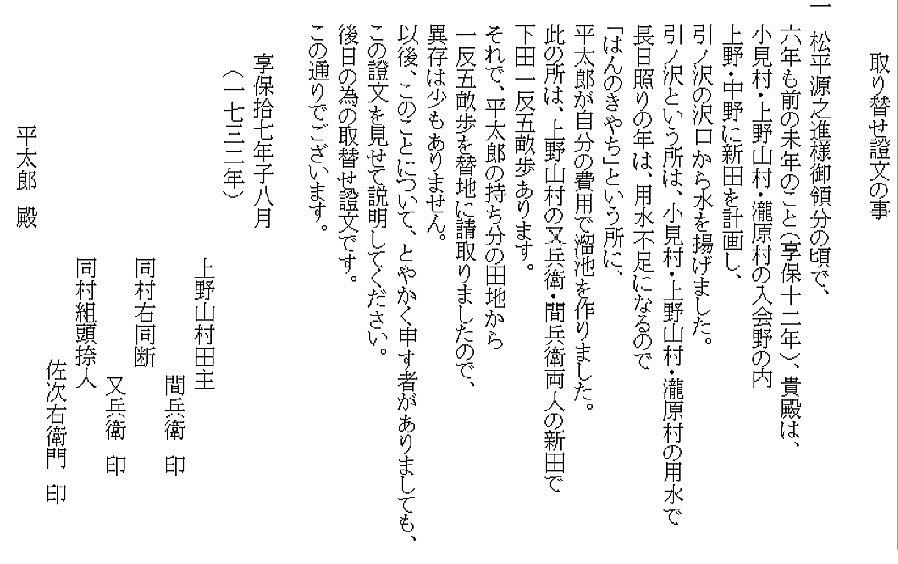 取り替せ證文の事
一 松平源之進様御領分の頃で、
六年も前の未年のこと（享保十二年）、貴殿は、
小見村・上野山村・瀧原村の入会野の内
上野・中野に新田を計画し、
引ノ沢の沢口から水を揚げました。
引ノ沢という所は、小見村・上野山村・瀧原村の用水で
長日照りの年は、用水不足になるので
「はんのきやち」という所に、
平太郎が自分の費用で溜池を作りました。
此の所は、上野山村の又兵衛・間兵衛両人の新田で
下田一反五畝歩あります。
それで、平太郎の持ち分の田地から
一反五畝歩を替地に請取りましたので、
異存は少もありません。
以後、このことについて、とやかく申す者がありましても、
この證文を見せて説明してください。
後日の為の取替せ證文です。
この通りでございます。
享保拾七年子八月
（一七三二年）
上野山村田主
間兵衛 印
同村右同断
又兵衛 印
同村組頭捺人
佐次右衛門 印
平太郎 殿